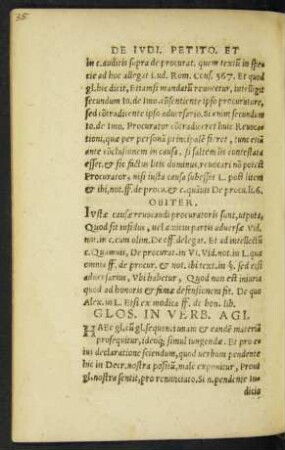 35
DE IVDI. PETITO. ET
in c. audiuis supra de procurat. quem textū in spe
cie ad hoc allegat Lud. Rom. Cons. 367. Et quod
gl. hic dicit, si tamsi mandatū reuocetur, intelligit
secundum Io. de Imo. cōsentiente ipso procuratore,
sed cōtradicente ipso aduersario. Secus secundum
Io. de Imo. Procurator cōtradiceret huic Reuoca
tioni, quæ per personā principalē fieret, tunc etiā
ante cōclusionem in causa. si saltem lis contestata
esset, & sic factus litis dominus, reuocari nō potest
Procurator, nisi iusta causa subesset L. post litem
& ibi, not. ff. de procu. & c. quāuis De procu. li. 6.
OBITER.
Iustæ causæ reuocandi procuratoris sunt, utputa,
Quod sit infidus, uel amicus partis aduersæ Vid.
not. in c. cum olim. De off. delegat. Et ad intellectū
c. Quamuis, De procurat. in VI. Vid. not. in L. quæ
omnia ff. de procur. & not. ibi text. in §. sed est
aduersarius, Vbi habetur, Quod non est iniuria
quod ad honoris & famæ defensionem fit. De quo
Alex. in L. Etsi ex modica ff. de bon. lib.
GLOS. IN VERB. AGI.
HAEc gl. cū gl. sequen. unam & eandē materiā
prosequitur, ideoq; simul iungendæ. Et pro ea
ius declaratione sciendum, quod uerbum pendente
hic in Decr. nostra positū, male exponitur, Prout
gl. nostra sentit, pro renunciato. Si n. pendente iu
dicio